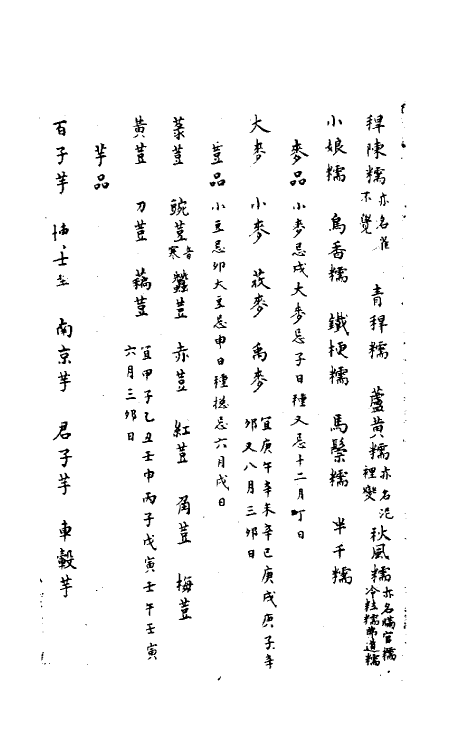 稈陳糯亦名雀不覺 青稈糯 蘆黃糯亦名泥裡變 秋風糯亦名瞞官糯冷粒糯即道糯
小娘糯 烏香糯 鐵梗糯 馬鬃糯 半千糯
麥品小麥忌戌大麥忌子日種又忌十二月町日
大麥 小麥 莜麥 禹麥宜庚午辛未辛巳庚戌庚子辛卯又八月三卯日
荳品小豆忌卯大豆忌申日種總忌六月戌日
菉荳 豌荳 寒荳 赤荳 紅荳 角荳 梅荳
黃荳 刀荳 藕荳宜甲子乙丑壬申丙子戊寅壬午壬寅六月三卯日
芋品
百子芋 南京芋 君子芋 車轂芋